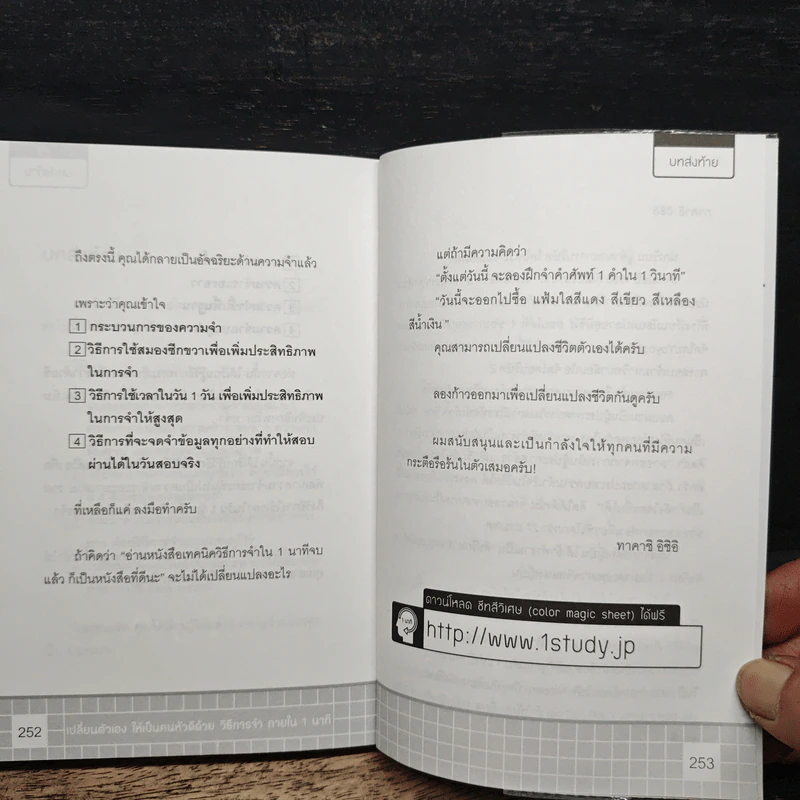 ถึงตรงนี้ คุณได้กลายเป็นอัจฉริยะด้านความจำแล้ว
เพราะว่าคุณเข้าใจ
1 กระบวนการของความจำ
2 วิธีการใช้สมองซีกขวาเพื่อเพิ่มประสิทธิภาพ
ในการจำ
3 วิธีการใช้เวลาในวัน 1 วัน เพื่อเพิ่มประสิทธิภาพ
ในการจำให้สูงสุด
4 วิธีการที่จะจดจำข้อมูลทุกอย่างที่ทำให้สอบ
ผ่านได้ในวันสอบจริง
ที่เหลือก็แค่ ลงมือทำครับ
ถ้าคิดว่า “อ่านหนังสือเทคนิควิธีการจำใน 1 นาทีจบ
แล้ว ก็เป็นหนังสือที่ดีนะ” จะไม่ได้เปลี่ยนแปลงอะไร
252 เปลี่ยนตัวเอง ให้เป็นคนหัวดีด้วย วิธีการจำ ภายใน 1 นาที
บทส่งท้าย
แต่ถ้ามีความคิดว่า
“ตั้งแต่วันนี้ จะลองฝึกจำคำศัพท์ 1 คำใน 1 วินาที”
“วันนี้จะออกไปซื้อ แฟ้มใสสีแดง สีเขียว สีเหลือง
สีน้ำเงิน”
คุณสามารถเปลี่ยนแปลงชีวิตตัวเองได้ครับ
ลองก้าวออกมาเพื่อเปลี่ยนแปลงชีวิตกันดูครับ
ผมสนับสนุนและเป็นกำลังใจให้ทุกคนที่มีความ
กระตือรือร้นในตัวเสมอครับ!
ทาคาชิ อิชิอิ
ดาวน์โหลด ชีทสีวิเศษ (color magic sheet) ได้ฟรี
http://www.1study.jp
253